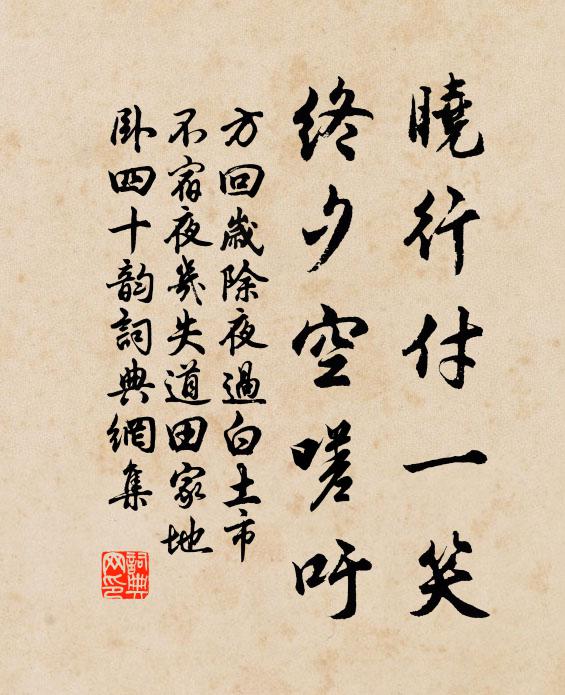 曉行付一笑
終夕空嗟吁
方回歲除夜過白土市
不宿夜幾失道田家地
臥四十韵詞典網集
詞典網印